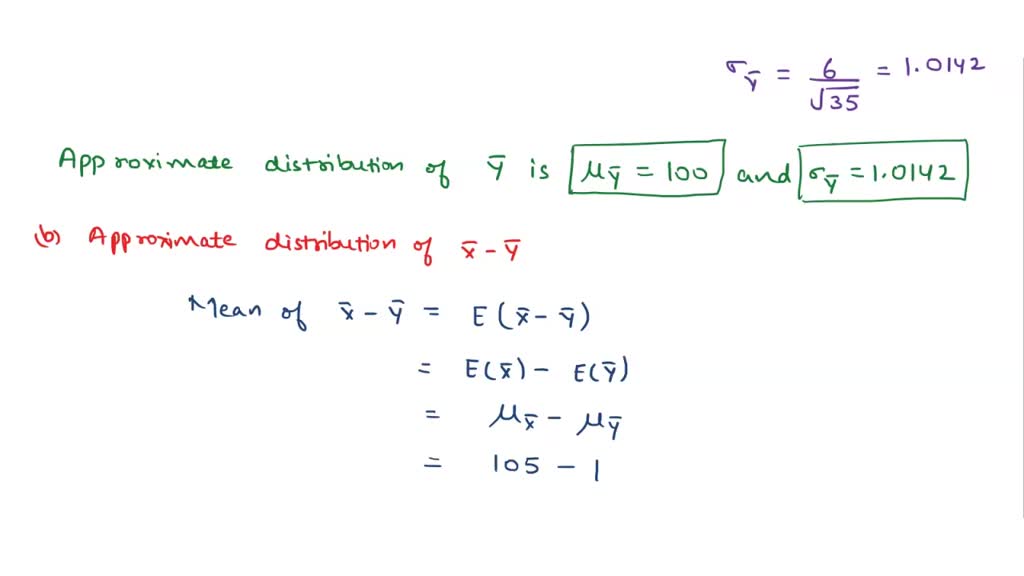 σ_Ȳ = 6/√35 = 1.0142
Approximate distribution of Ȳ is μ_Ȳ = 100 and σ_Ȳ = 1.0142
(b) Approximate distribution of x̄ - Ȳ
Mean of x̄ - Ȳ = E(x̄ - Ȳ)
= E(x̄) - E(Ȳ)
= μ_x̄ - μ_Ȳ
= 105 - 1